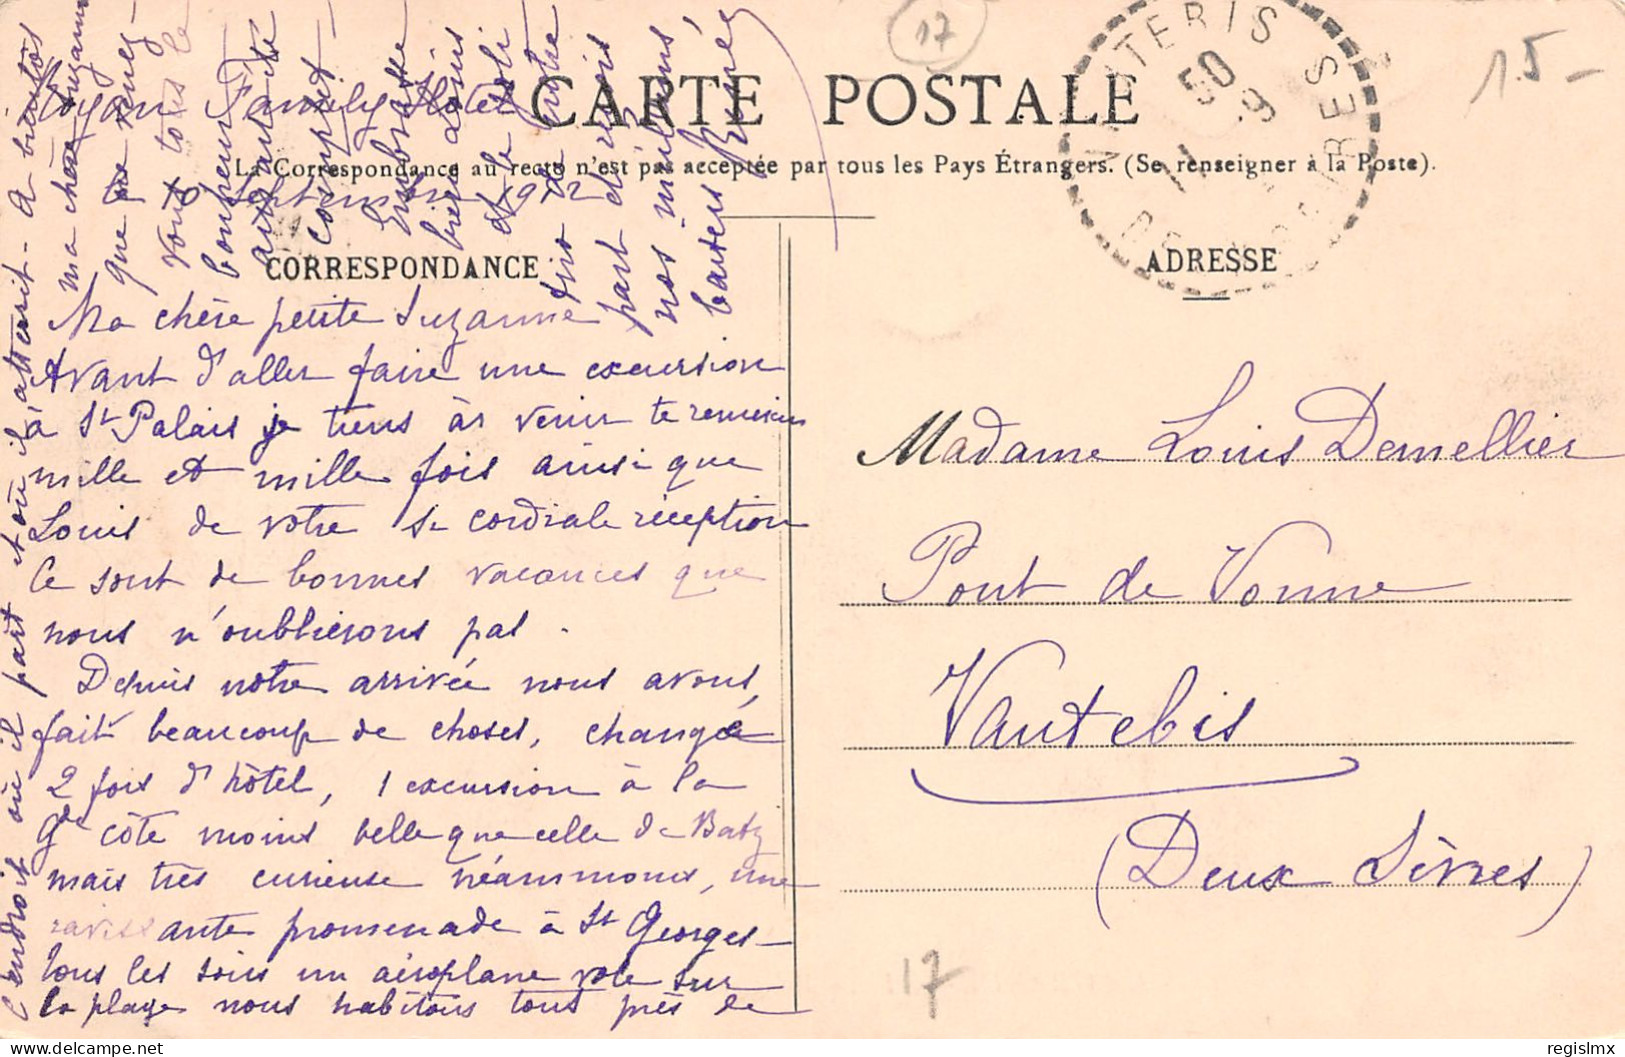 CARTE POSTALE
La Correspondance au recto n'est pas acceptée par tous les Pays Étrangers. (Se renseigner à la Poste).
CORRESPONDANCE
ADRESSE
17
15-
Royan Family Hotel
le 10 Septembre 1912
Ma chère petite Suzanne
Avant d'aller faire une excursion
à St Palais je tiens à venir te remercier
mille et mille fois ainsi que
Louis de votre si cordiale réception
Ce sont de bonnes vacances que
nous n'oublierons pas.
Depuis notre arrivée nous avons
fait beaucoup de choses, changé
2 fois d'hôtel, 1 excursion à la
gde côte moins belle que celle de Batz
mais très curieuse néanmoins, une
ravissante promenade à St Georges-
tous les soirs un aéroplane vole sur
la plage nous habitons tout près de
l'endroit où il part et où il atterrit. A bientôt
ma chère Suzanne
que
vous tous le
bonheur
compris
Embrasse
bien
et le
de notre
part
nos meilleurs
baisers Renée
Madame Louis Demellier
Pont de Vonne
Vautebis
(Deux Sèvres)
17
VAUTEBIS
50
9
DEUX SEVRES
delcampe.net
regislmx